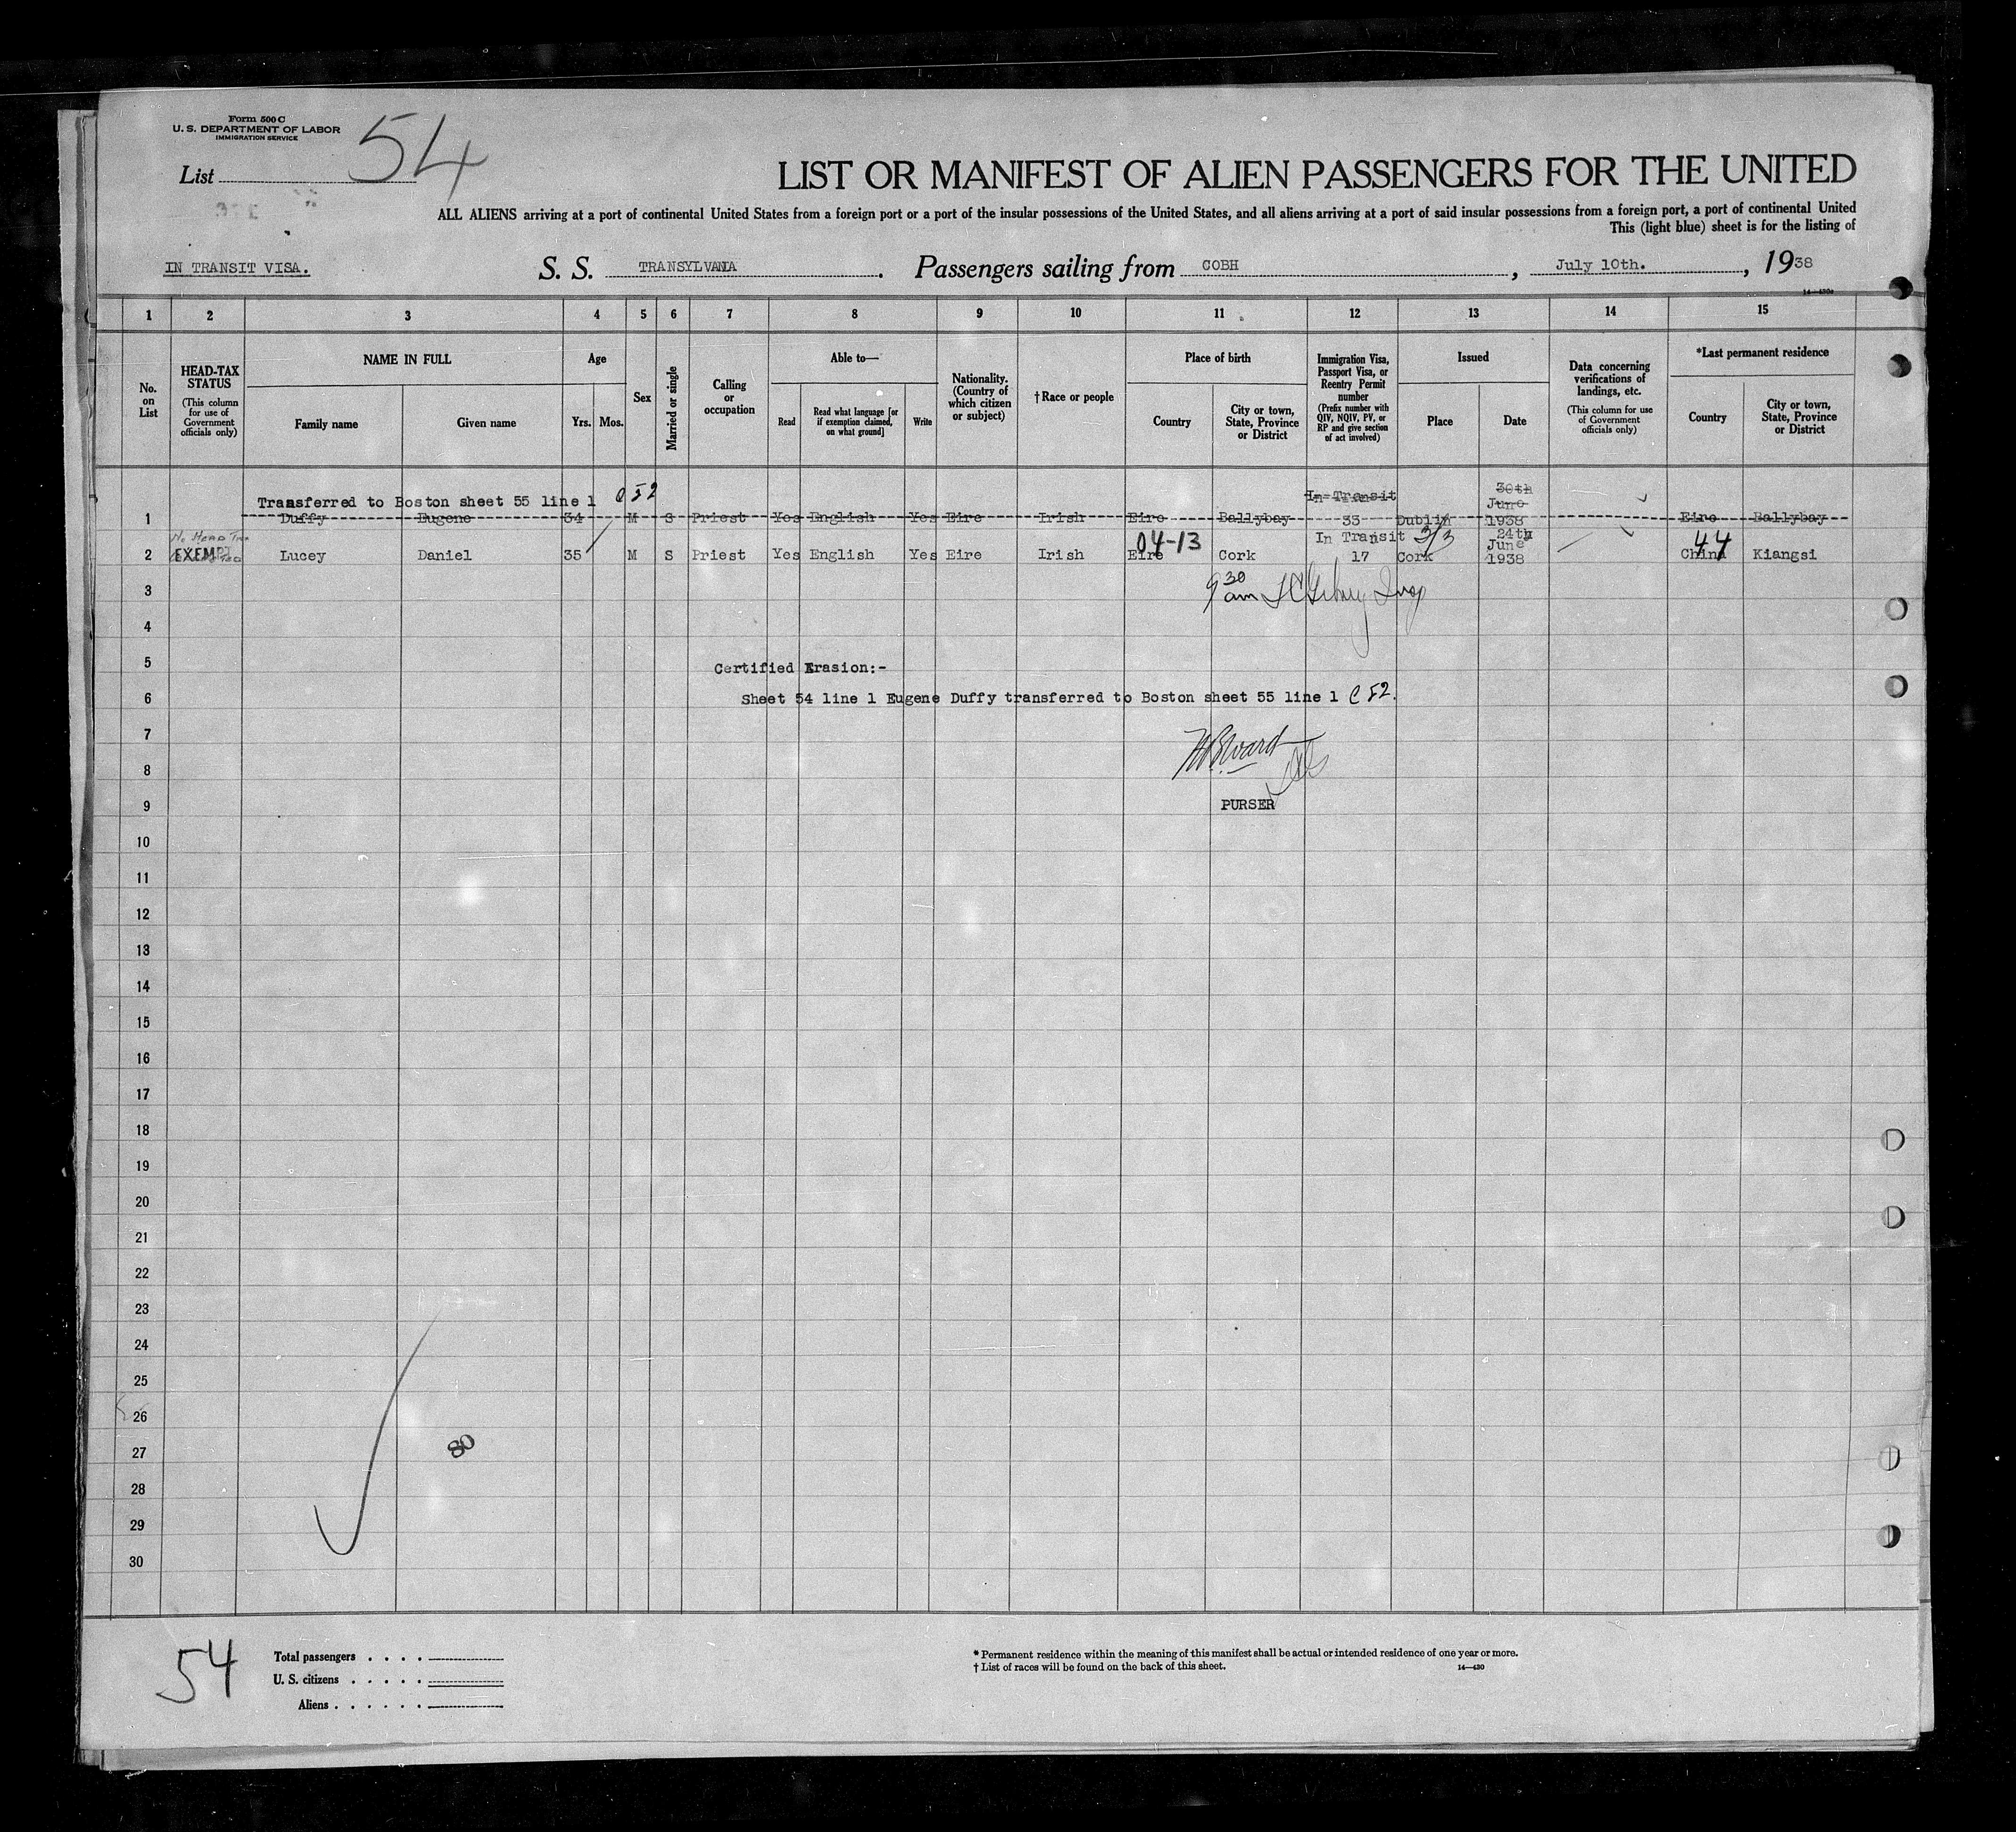 Form 500 C
U. S. DEPARTMENT OF LABOR
IMMIGRATION SERVICE
List 54
LIST OR MANIFEST OF ALIEN PASSENGERS FOR THE UNITED
ALL ALIENS arriving at a port of continental United States from a foreign port or a port of the insular possessions of the United States, and all aliens arriving at a port of said insular possessions from a foreign port, a port of continental United
This (light blue) sheet is for the listing of
IN TRANSIT VISA. S. S. TRANSYLVANIA. Passengers sailing from COBH, July 10th., 1938
14—430c
1 2 3 4 5 6 7 8 9 10 11 12 13 14 15
No. on List
HEAD-TAX STATUS (This column for use of Government officials only)
NAME IN FULL
Family name Given name
Age
Yrs. Mos.
Sex
Married or single
Calling or occupation
Able to—
Read Read what language [or if exemption claimed, on what ground] Write
Nationality. (Country of which citizen or subject)
† Race or people
Place of birth
Country City or town, State, Province or District
Immigration Visa, Passport Visa, or Reentry Permit number (Prefix number with QIV, NQIV, PV, or RP and give section of act involved)
Issued
Place Date
Data concerning verifications of landings, etc. (This column for use of Government officials only)
*Last permanent residence
Country City or town, State, Province or District
Transferred to Boston sheet 55 line 1 C 52
1 Duffy Eugene 34 M S Priest Yes English Yes Eire Irish Eire Ballybay In Transit 33 Dublin 30th June 1938 Eire Ballybay
No Head Tax
2 EXEMPT Lucey Daniel 35 M S Priest Yes English Yes Eire Irish Eire 04-13 Cork In Transit 17 Cork 3/3 24th June 1938 China 44 Kiangsi
3 9 30 am Insp
4
5 Certified Erasion:-
6 Sheet 54 line 1 Eugene Duffy transferred to Boston sheet 55 line 1 C 52.
7 Ward
8
9 PURSER
10
11
12
13
14
15
16
17
18
19
20
21
22
23
24
25
26
27 80
28
29
30
54
Total passengers
U. S. citizens
Aliens
* Permanent residence within the meaning of this manifest shall be actual or intended residence of one year or more.
† List of races will be found on the back of this sheet. 14—430